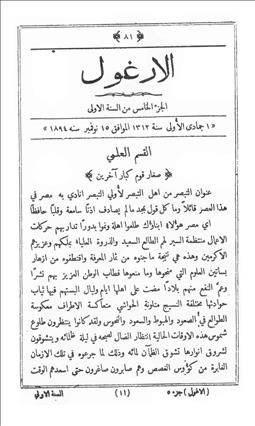 ﴿ ٨١ ﴾
الارغول
الجزء الخامس من السنة الاولى
« ١ جمادى الأولى سنة ١٣١٢ الموافق ١٥ نوفمبر سنه ١٨٩٤ »
القسم العلمي
﴿ صغار قوم كبار آخرين ﴾
عنوان التبصر من اهل التبصر لأولي التبصر انادي به مصر في
هذا العصر قائلاً وما كل قول مجد مالم يصادف اذنًا سامعة وقلبًا حافظًا
اي مصر هؤلاء ابناؤك طلعوا اهلة وفوا بدورًا تداربهم حركات
الاعمال منتظمة السير لم الطالع السعيد والذروة العلياء بملكهم وعزيزهم
الاكرمين وهذه هي نتيجة ما جنوه من ثمار المعرفة واقتطفوه من ازهار
بساتين العلوم التي منحوها وما منعوها فطاب الوطن العزيز بهم نشرًا
وعمّ النفع منهم بلادًا مضت على اهلها ايام وليال البستهم فيها ثياب
حوادثها مختلفة النسيج متلونة الحواشي متعاكسة الاطراف معكوسة
الطوالع في الصعود والهبوط والسعود والنحوس ولقد كانوا ينتظرون طلوع
شموس هذه الاوقات الحالية انتظار الضال لصبحه في ليلة ظلمائه ويتشوقون
لشروق انوارها تشوق الظمآن لمائه وذلك لما جرعوه في تلك الازمان
الغابرة من كؤوس الغصص وهم صابرون صاغرون حتى اسعدهم الوقت
( الارغول ) جزء ٥
( ١١ )
السنة الاولى